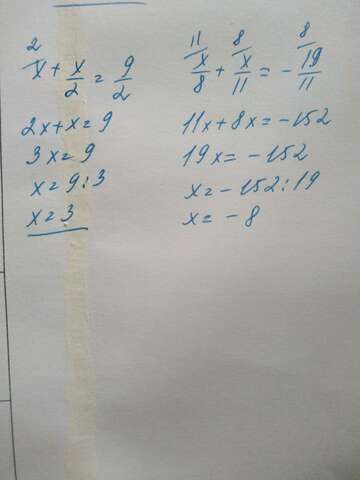 2 x + x/2 = 9/2
2x + x = 9
3x = 9
x = 9 : 3
x = 3
11 x/8 + 8 x/11 = - 8 19/11
11x + 8x = -152
19x = -152
x = -152 : 19
x = -8